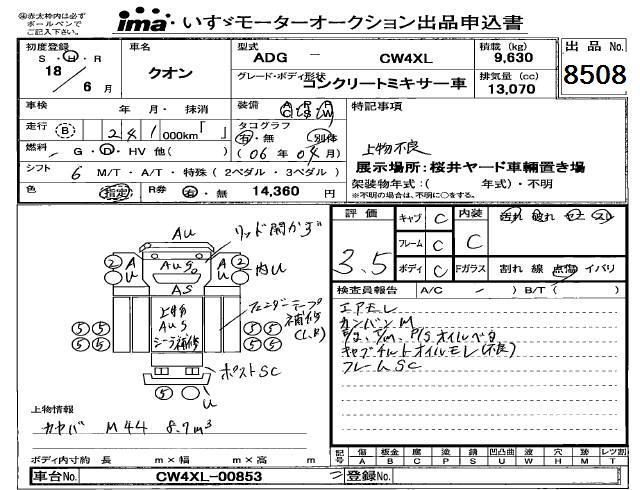 ㊟赤太枠内は必ず
ボールペンで
ご記入下さい。
ima いすゞモーターオークション出品申込書
初度登録 S・H・R 18 / 6 月
車名 クオン
型式 ADG － CW4XL
積載 (kg) 9,630
出品 No. 8508
グレード・ボディ形状 コンクリートミキサー車
排気量 (cc) 13,070
車検 年 月・ 抹消
装備 AC PS PW
特記事項
走行 (B) 241 000km「 」
タコグラフ 有・無 別体
(06年04月)
上物不良
燃料 G・D・HV 他( )
展示場所:桜井ヤード車輌置き場
シフト 6 M/T・A/T・特殊(2ペダル・3ペダル)
架装物年式:( 年式)・不明
※不明の場合は、不明に○をする。
色 指定 R券 有・無 14,360 円
評価 3.5
キャブ C
フレーム C
ボディ C
内装 C
汚れ 破れ コゲ スレ
Fガラス 割れ 線 点傷 イバリ
検査員報告 A/C( － ) B/T( )
エアモレ
カンバンM
E/g、T/m、P/Sオイルベタ
キャブチルトオイルモレ(不良)
フレームSC
AU
リッド開かず
2 A
U
AUS
AS
2 A
U
内U
上物
AUS
シーラ補修
フェンダーテープ
補修
(L,R)
5 5
5 5
5 5
5 5
ポストSC
5
U
上物情報
カヤバ M44 8.7m³
ボディ内寸約 長 m×幅 m×高 m
記号 傷 A 板金 B 腐 C 塗 P 錆 S 凹凸曲 U 波 W 穴 H 跡 M レツ割 T
車台No. CW4XL-00853
登録No.